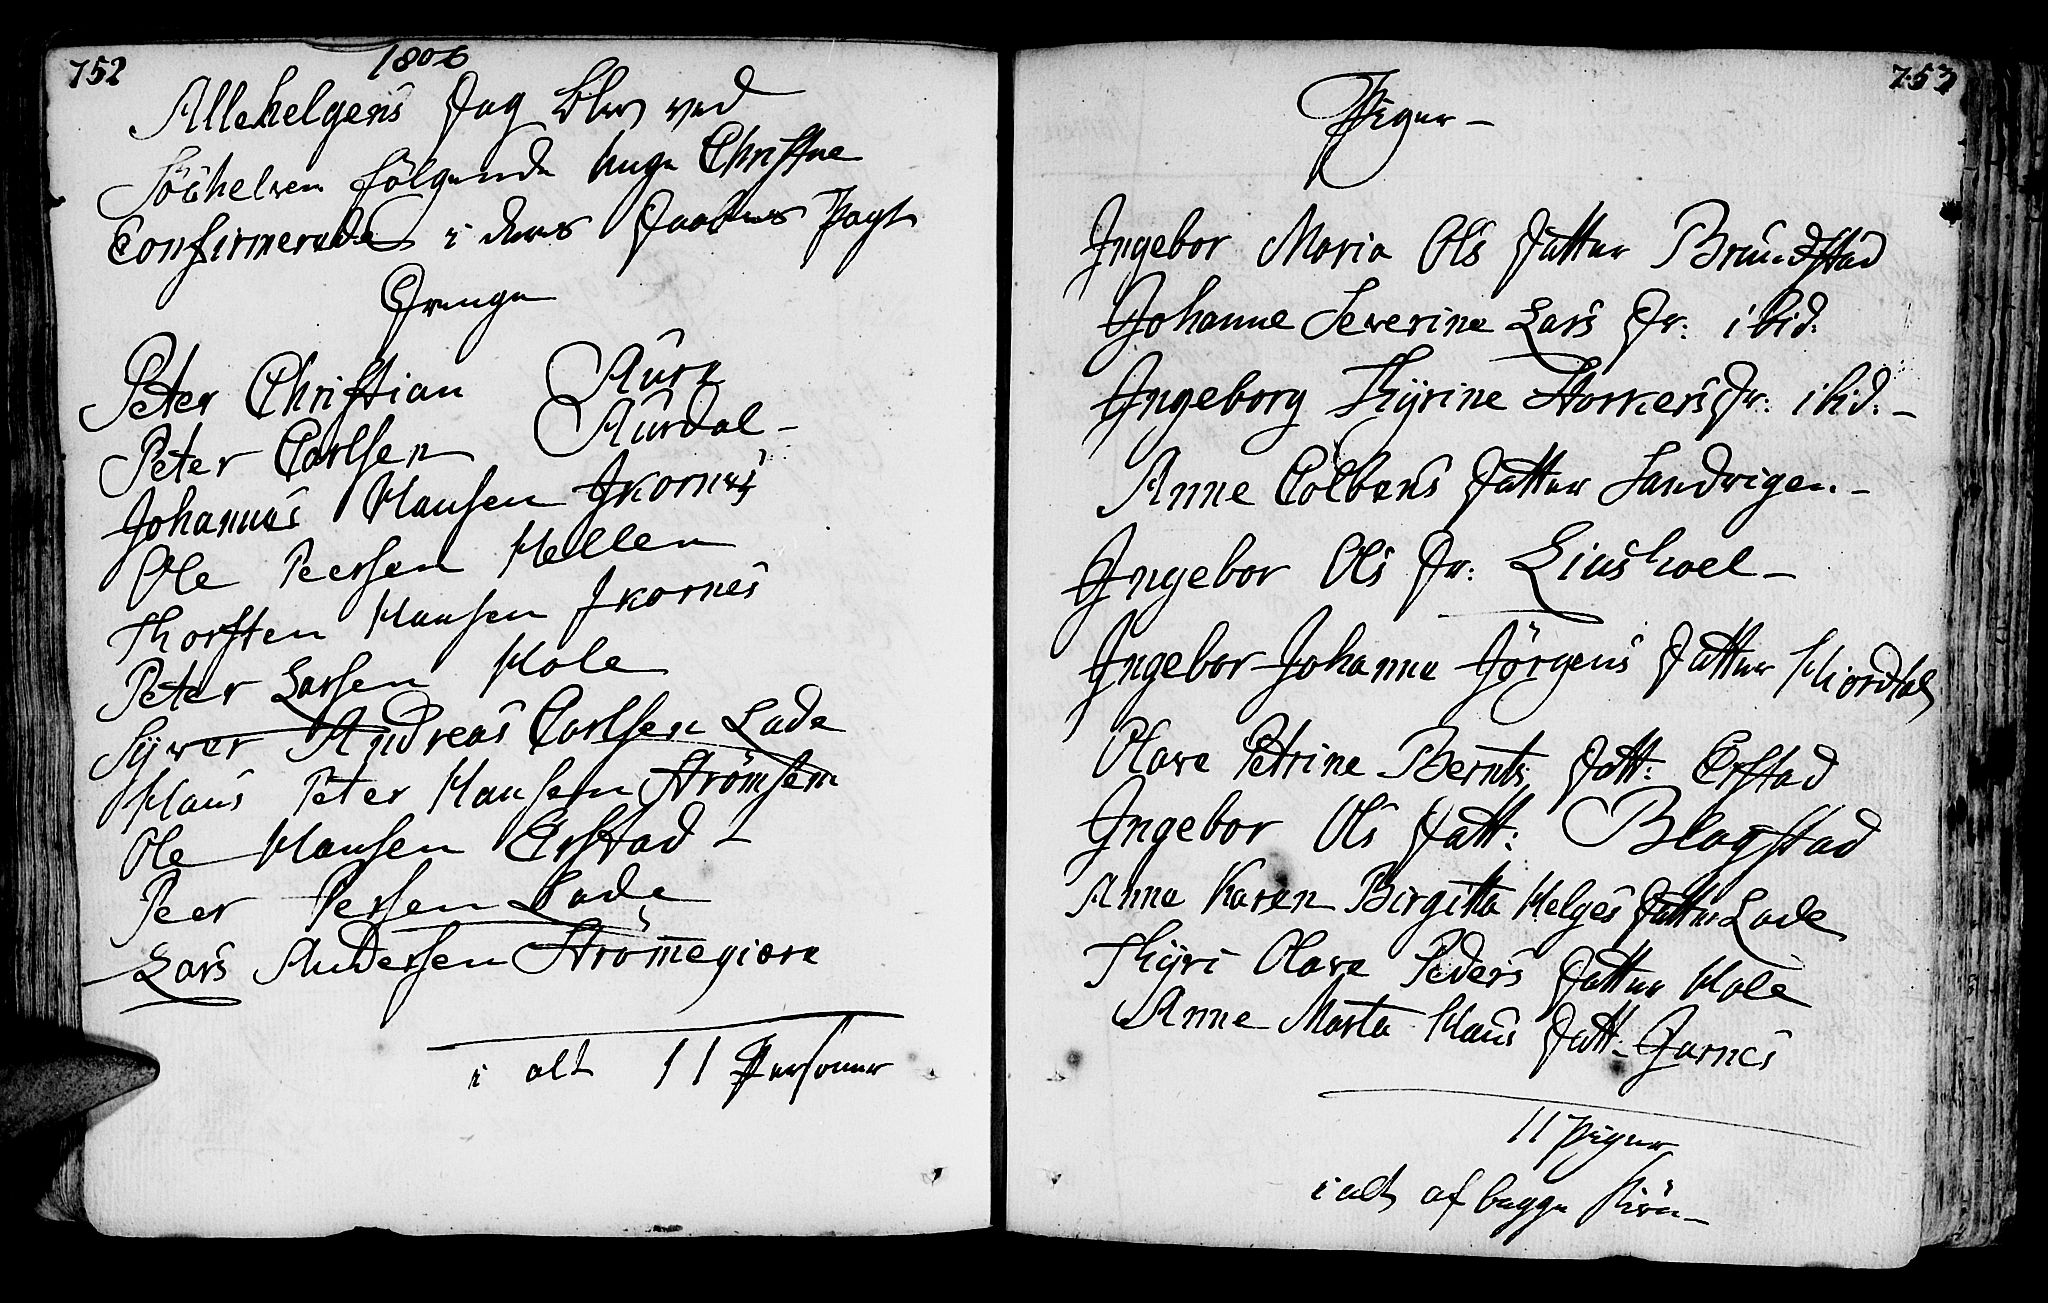 752
1806
Allehelgens Dag blev ved
Söchelven følgende unge Christne
Confirmerede i deres Daabes Pagt
Drenge
Peter Christian Aure
Peter Carlsen Aurdal –
Johannes Hansen Ikornes
Ole Peersen Hellen
Thorsten Hansen Ikornes
Peter Larsen Hole
Syver Andreas Carlsen Lade
Hans Peter Hansen Strömsem
Ole Hansen Erstad –
Peer Persen Lade
Lars Andersen Strömegiære
i alt 11 Personer
753
Piger –
Ingebor Maria Ols Datter Brundstad
Johanne Severine Lars Dr: ibid:
Ingeborg Kyrine Storkers Dr: ibid: –
Anne Colbens Datter Sandvigen. –
Ingebor Ols Dr: Liushoel –
Ingebor Johanne Jörgens Datter Hiordtal
Olave Petrine Bernts Datt: Erstad
Ingebor Ols Datt: Blagstad
Anne Karen Birgitta Helges Datter Lade
Kyri Olave Peders Datter Hole
Anne Marta Hans Datt: Jarnes
11 Piger
i alt af begge Kiön –